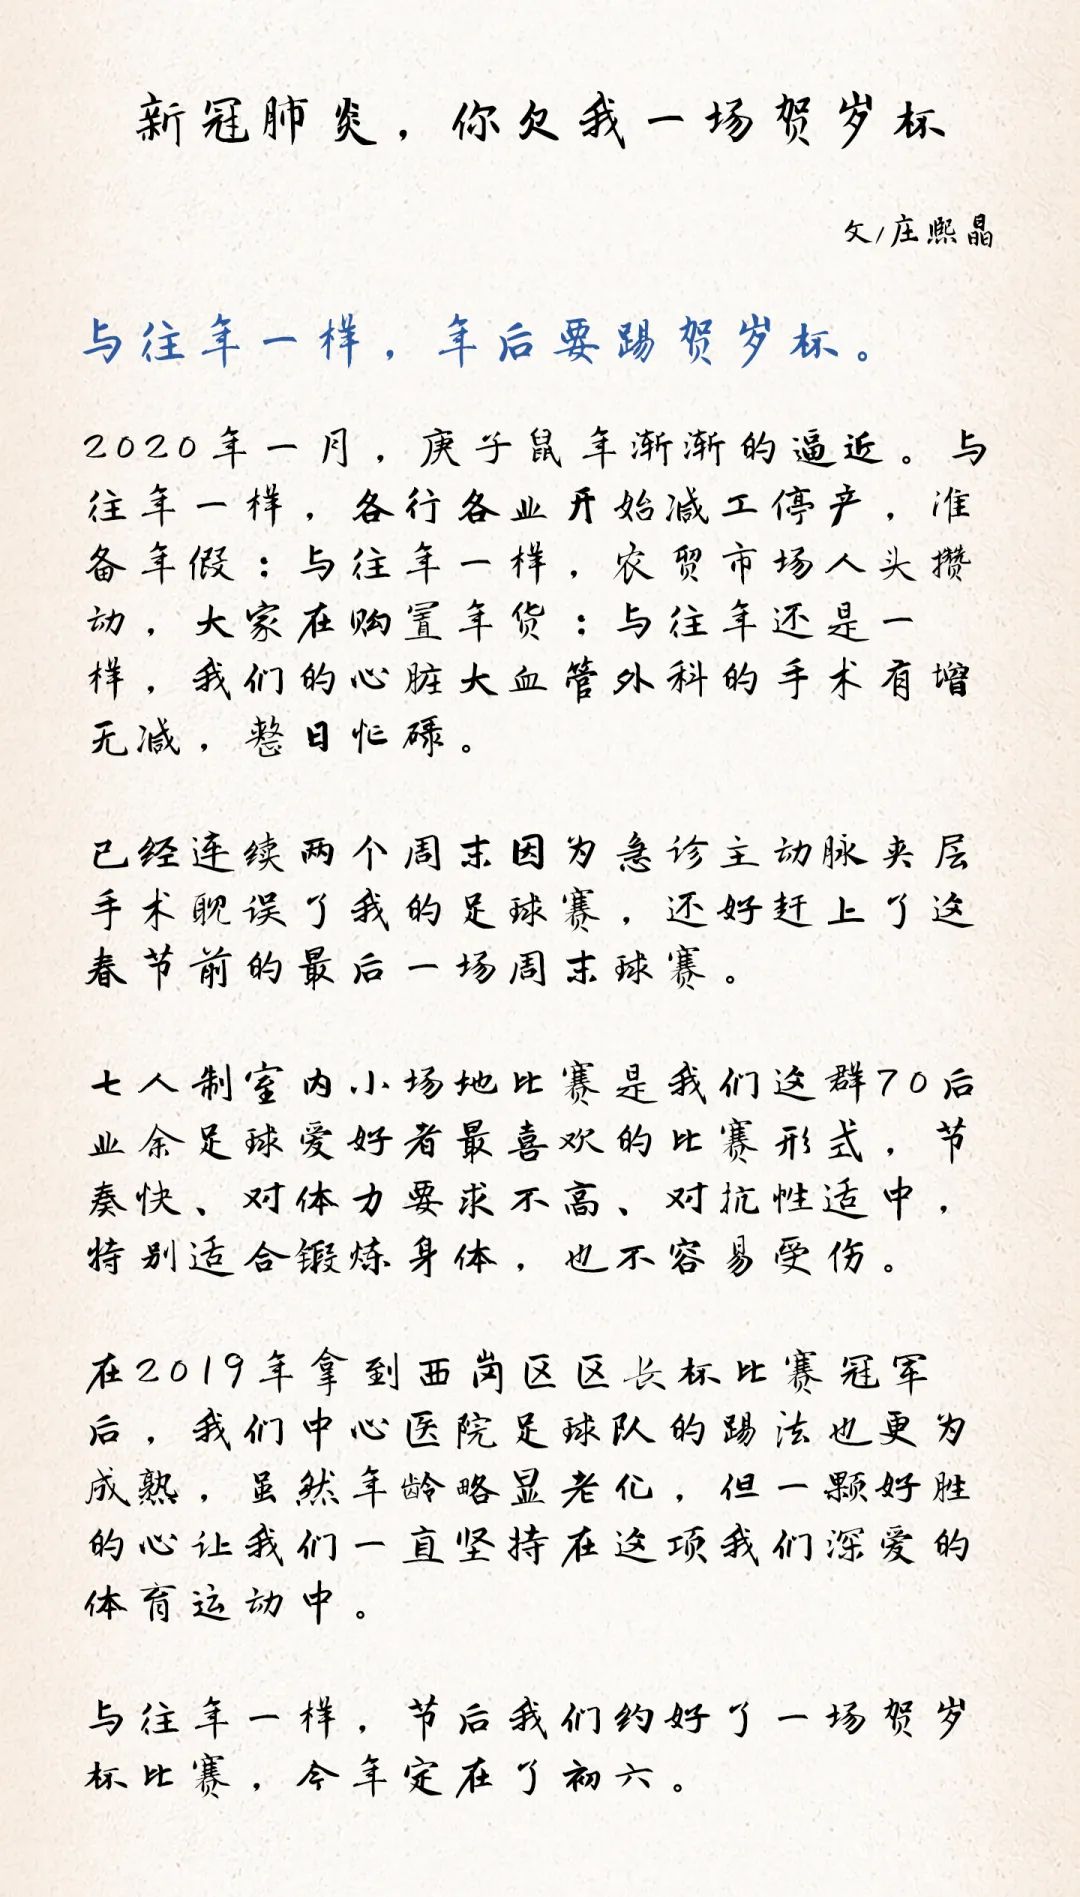 新冠肺炎，你欠我一场贺岁杯
文/庄熙晶
与往年一样，年后要踢贺岁杯。
2020年一月，庚子鼠年渐渐的逼近。与
往年一样，各行各业开始减工停产，准
备年假；与往年一样，农贸市场人头攒
动，大家在购置年货；与往年还是一
样，我们的心脏大血管外科的手术有增
无减，整日忙碌。
已经连续两个周末因为急诊主动脉夹层
手术耽误了我的足球赛，还好赶上了这
春节前的最后一场周末球赛。
七人制室内小场地比赛是我们这群70后
业余足球爱好者最喜欢的比赛形式，节
奏快、对体力要求不高、对抗性适中，
特别适合锻炼身体，也不容易受伤。
在2019年拿到西岗区区长杯比赛冠军
后，我们中心医院足球队的踢法也更为
成熟，虽然年龄略显老化，但一颗好胜
的心让我们一直坚持在这项我们深爱的
体育运动中。
与往年一样，节后我们约好了一场贺岁
杯比赛，今年定在了初六。